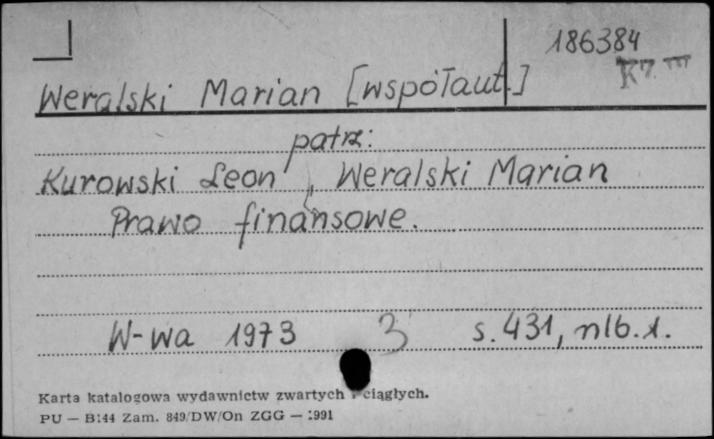 186384
K7. III
Weralski Marian [współaut.]
patrz:
Kurowski Leon, Weralski Marian
Prawo finansowe.
W-wa 1973 3 s. 431, nlb. 1.
Karta katalogowa wydawnictw zwartych i ciągłych.
PU — B144 Zam. 849/DW/On ZGG — 1991